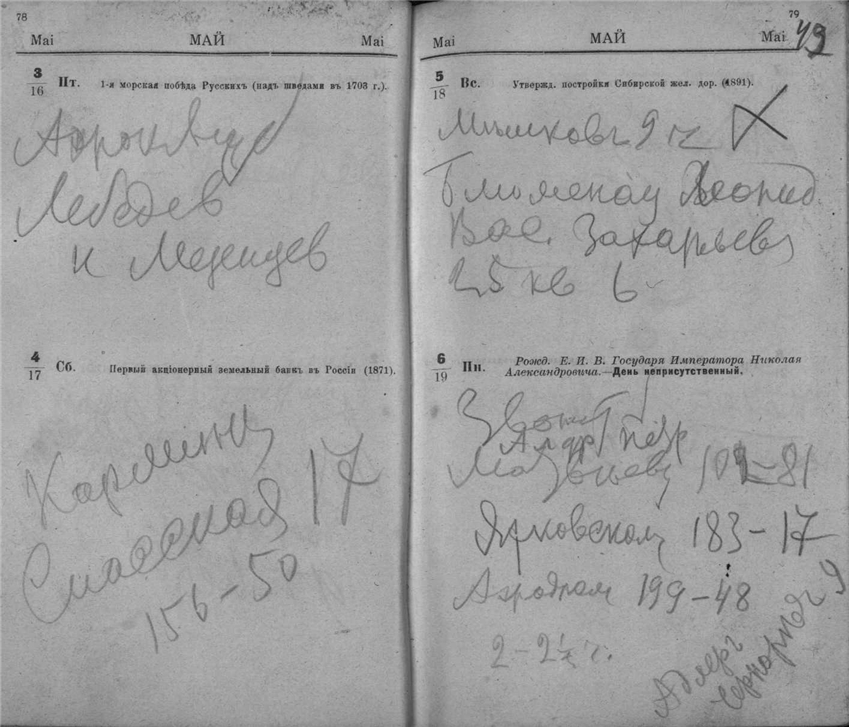 78
Mai МАЙ Mai
3/16 Пт. 1-я морская побѣда Русскихъ (надъ шведами въ 1703 г.).
Лебедев
и Медведев
4/17 Сб. Первый акціонерный земельный банкъ въ Россіи (1871).
Спасская 17
156-50
79
Mai МАЙ Mai 49
5/18 Вс. Утвержд. постройки Сибирской жел. дор. (1891).
9 ч X
Блюменау Леонид
Вас. Захарьевск
25 кв 6
6/19 Пн. Рожд. Е. И. В. Государя Императора Николая
Александровича.—День неприсутственный.
Матвѣеву
Янковскому 183-17
Аэродром 199-48
2-2½ ч.
Адлеръ